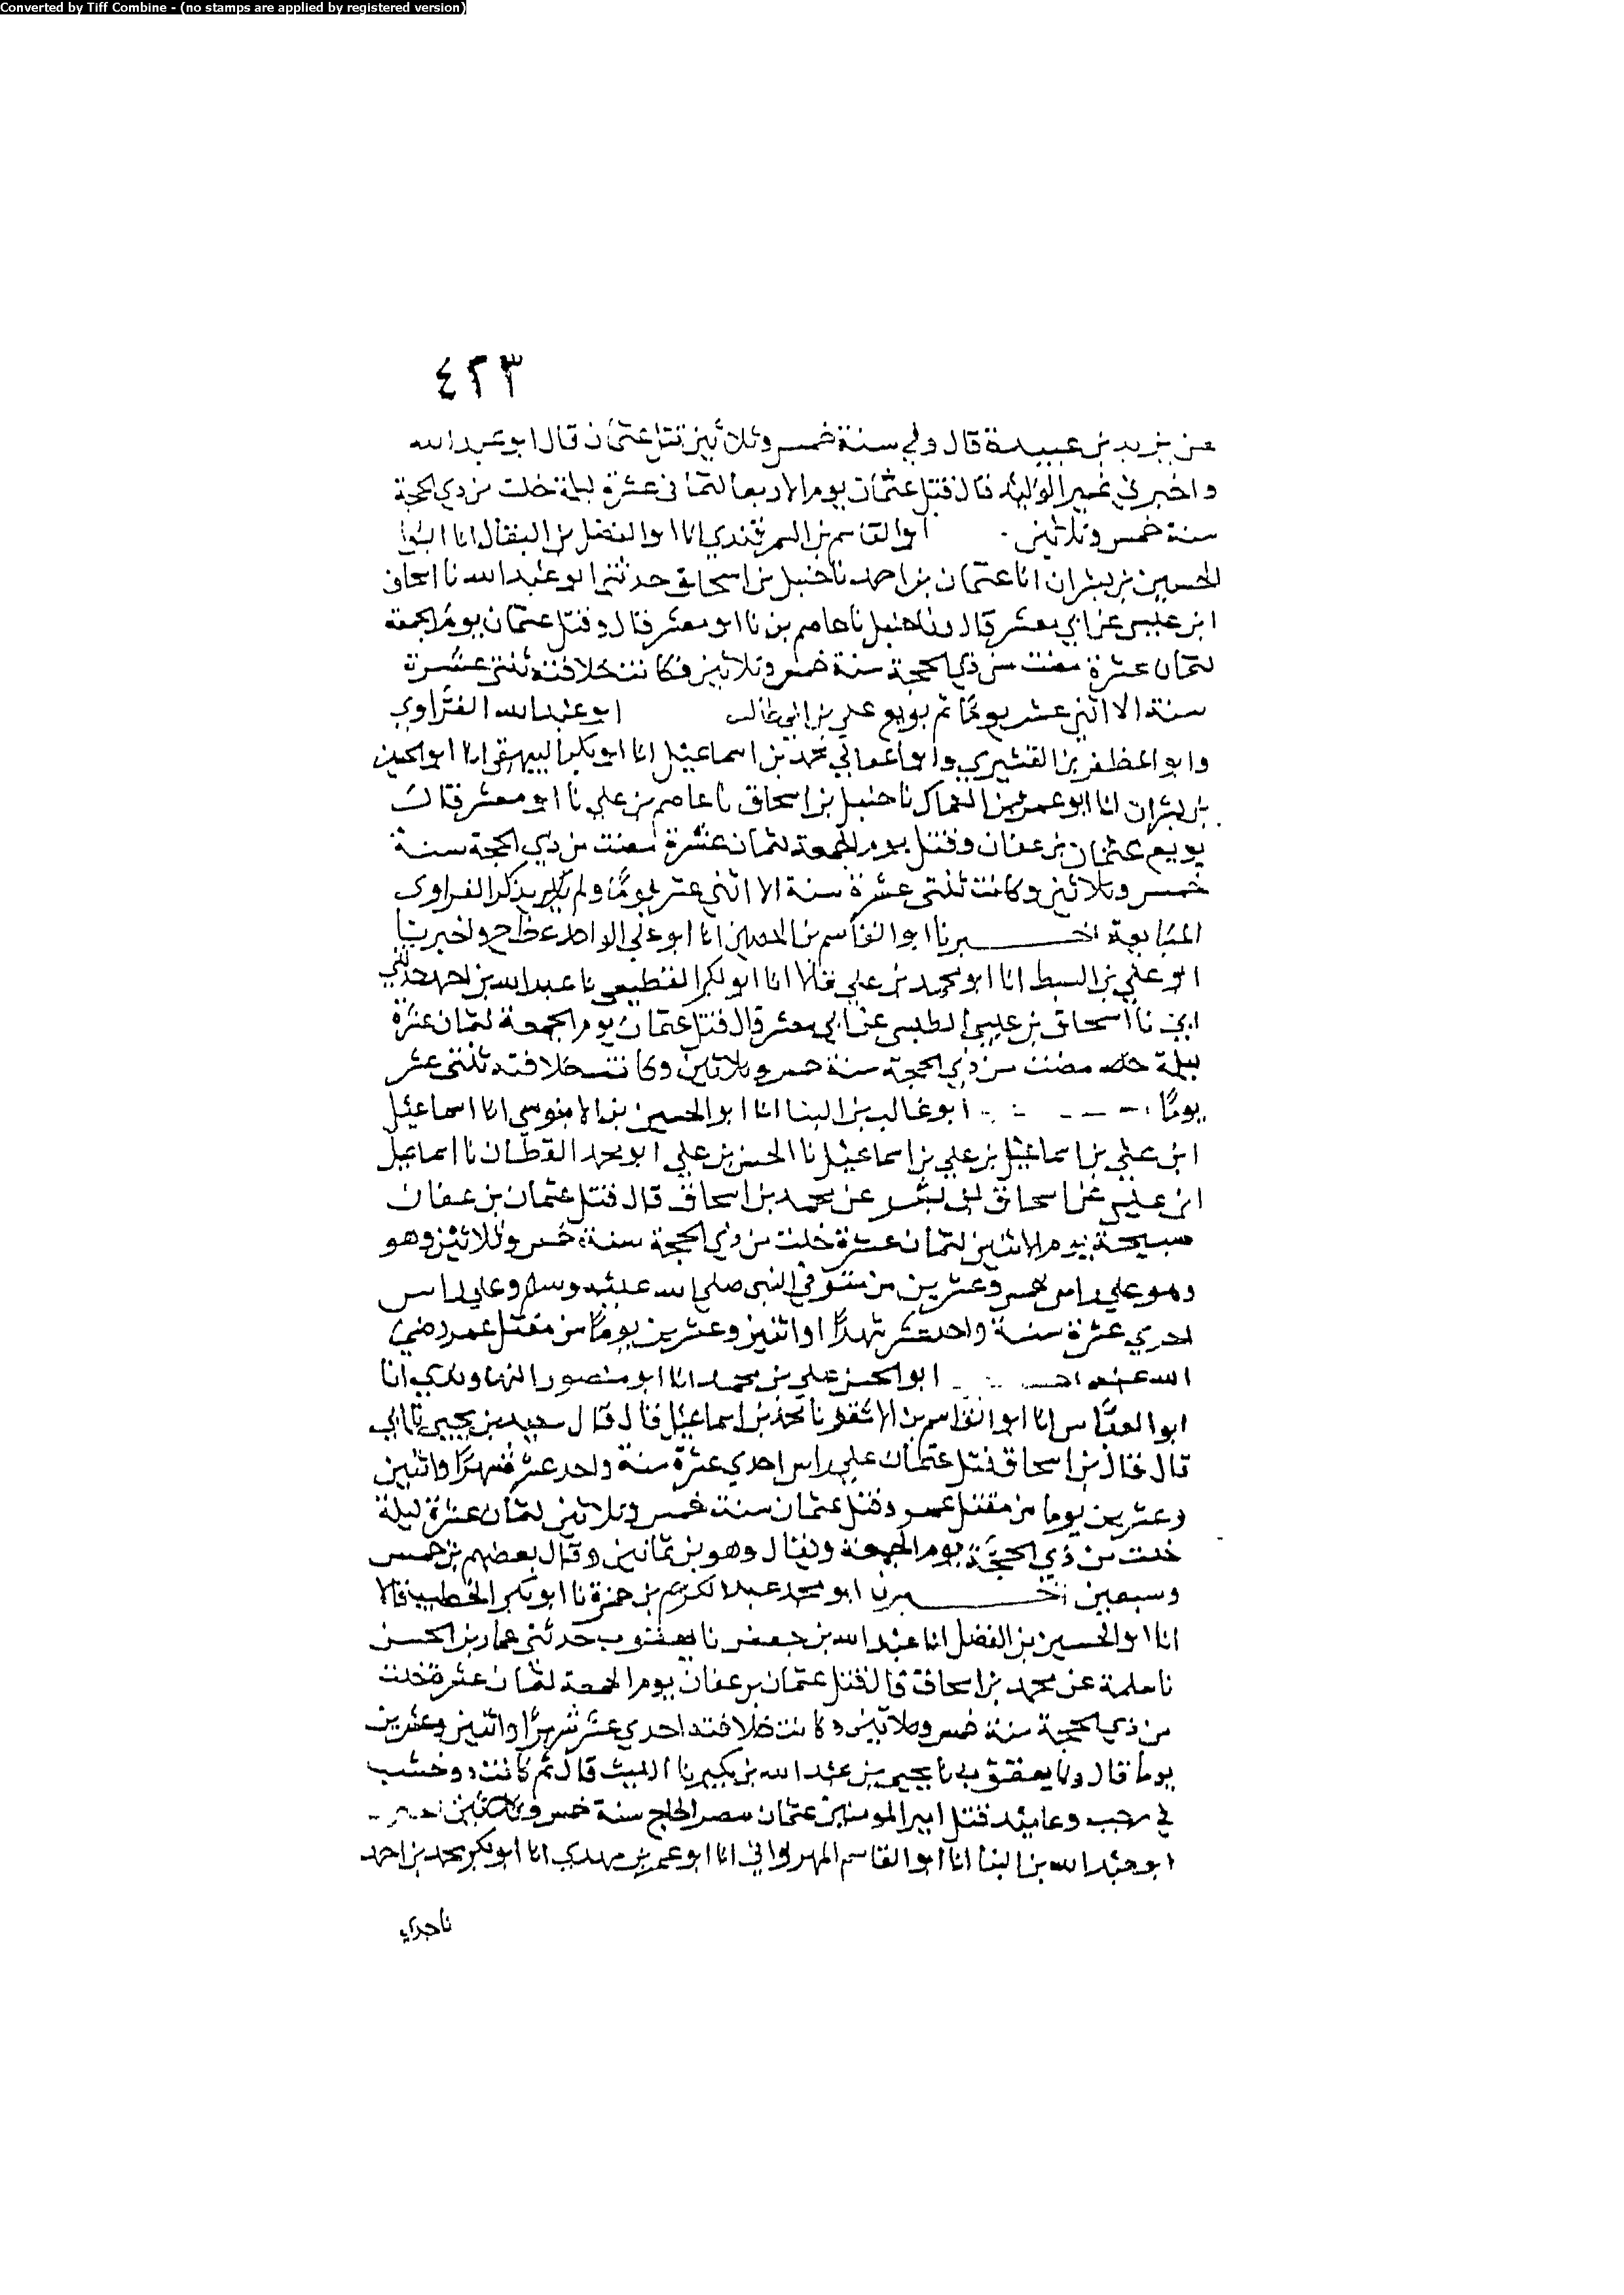 Converted by Tiff Combine - (no stamps are applied by registered version)
٤٢٣
عن يزيد بن عبيدة قال وفي سنة خمس وثلاثين قتل عثمان قال ابو عبد الله
واخبرني غير الوليد قال قتل عثمان يوم الاربعا لثمان عشرة ليلة خلت من ذي الحجة
سنة خمس وثلاثين ابو القاسم بن السمرقندي انا ابو الفضل بن البقال انا ابو
الحسين بن بشران انا عثمان بن احمد نا حنبل بن اسحاق حدثني ابو عبد الله نا اسحاق
ابن عيسى عن ابي معشر قال ونا حنبل نا عاصم بن نا ابو معشر قال وقتل عثمان يوم الجمعة
لثمان عشرة مضت من ذي الحجة سنة خمس وثلاثين فكانت خلافته ثنتى عشرة
سنة الا اثنى عشر يوما ثم بويع علي بن ابي طالب ابو عبد الله الفراوي
وابو المظفر بن القشيري وابو المعالي محمد بن اسماعيل انا ابو بكر البيهقي انا ابو الحسين
بن بشران انا ابو عمرو بن السماك نا حنبل بن اسحاق نا عاصم بن علي نا ابو معشر قال
بويع عثمان بن عفان وقتل يوم الجمعة لثمان عشرة مضت من ذي الحجة سنة
خمس وثلاثين وكانت ثنتى عشرة سنة الا اثنى عشر يوما ولم يذكر الفراوى
المبايعة اخبرنا ابو القاسم بن الحصين انا ابو علي الواعظ ح واخبرنا
ابو علي بن السبط انا ابو محمد بن علي قالا انا ابو بكر القطيعي نا عبد الله بن احمد حدثني
ابي نا اسحاق بن عيسى الطبعي عن ابي معشر قال قتل عثمان يوم الجمعة لثمان عشرة
ليلة مضت من ذي الحجة سنة خمس وثلاثين وكانت خلافته ثنتى عشر
يوما ابو غالب بن البنا انا ابو الحسين بن الابنوسي انا اسماعيل
ابن علي بن اسماعيل بن علي بن اسماعيل نا الحسن بن علي ابو محمد القطان نا اسماعيل
ابن عيسى عن اسحاق بن بشر عن محمد بن اسحاق قال قتل عثمان بن عفان
صبيحة يوم الاثنين لثمان عشرة خلت من ذي الحجة سنة خمس وثلاثين وهو
وهو علي راس خمس وعشرين من متوفى النبي صلى الله عليه وسلم وعلي راس
احدي عشرة سنة واحد عشر شهرا او اثنين وعشرين يوما من مقتل عمر رضي
الله عنه ابو الحسن علي بن محمد انا ابو منصور النهاوندي انا
ابو العباس انا ابو القاسم بن الاشقر نا محمد بن اسماعيل قال قال سعيد بن يحيى نا ابي
قال قال بن اسحاق قتل عثمان علي راس احدي عشرة سنة واحد عشر شهرا واثنين
وعشرين يوما من مقتل عمر وقتل عثمان سنة خمس وثلاثين لثمان عشرة ليلة
خلت من ذي الحجة يوم الجمعة ويقال وهو بن ثمانين وقال بعضهم بن خمس
وسبعين اخبرنا ابو محمد عبد الكريم بن حمزة نا ابو بكر الخطيب قالا
انا ابو الحسين بن الفضل انا عبد الله بن جعفر نا يعقوب حدثني عمار بن الحسن
نا سلمة عن محمد بن اسحاق قال قتل عثمان بن عفان يوم الجمعة لثمان عشرة خلت
من ذي الحجة سنة خمس وثلاثين وكانت خلافته احدي عشر شهرا واثنين وعشرين
يوما قال ونا يعقوب نا يحيى بن عبد الله بن بكير نا الليث قال ثم كانت ذو خشب
في رجب وعامئذ قتل امير المومنين عثمان مصدر الحاج سنة خمس وثلاثين
ابو عبد الله بن البنا انا ابو القاسم المهرواني انا ابو عمر بن مهدي انا ابو بكر محمد بن احمد
نا جدي